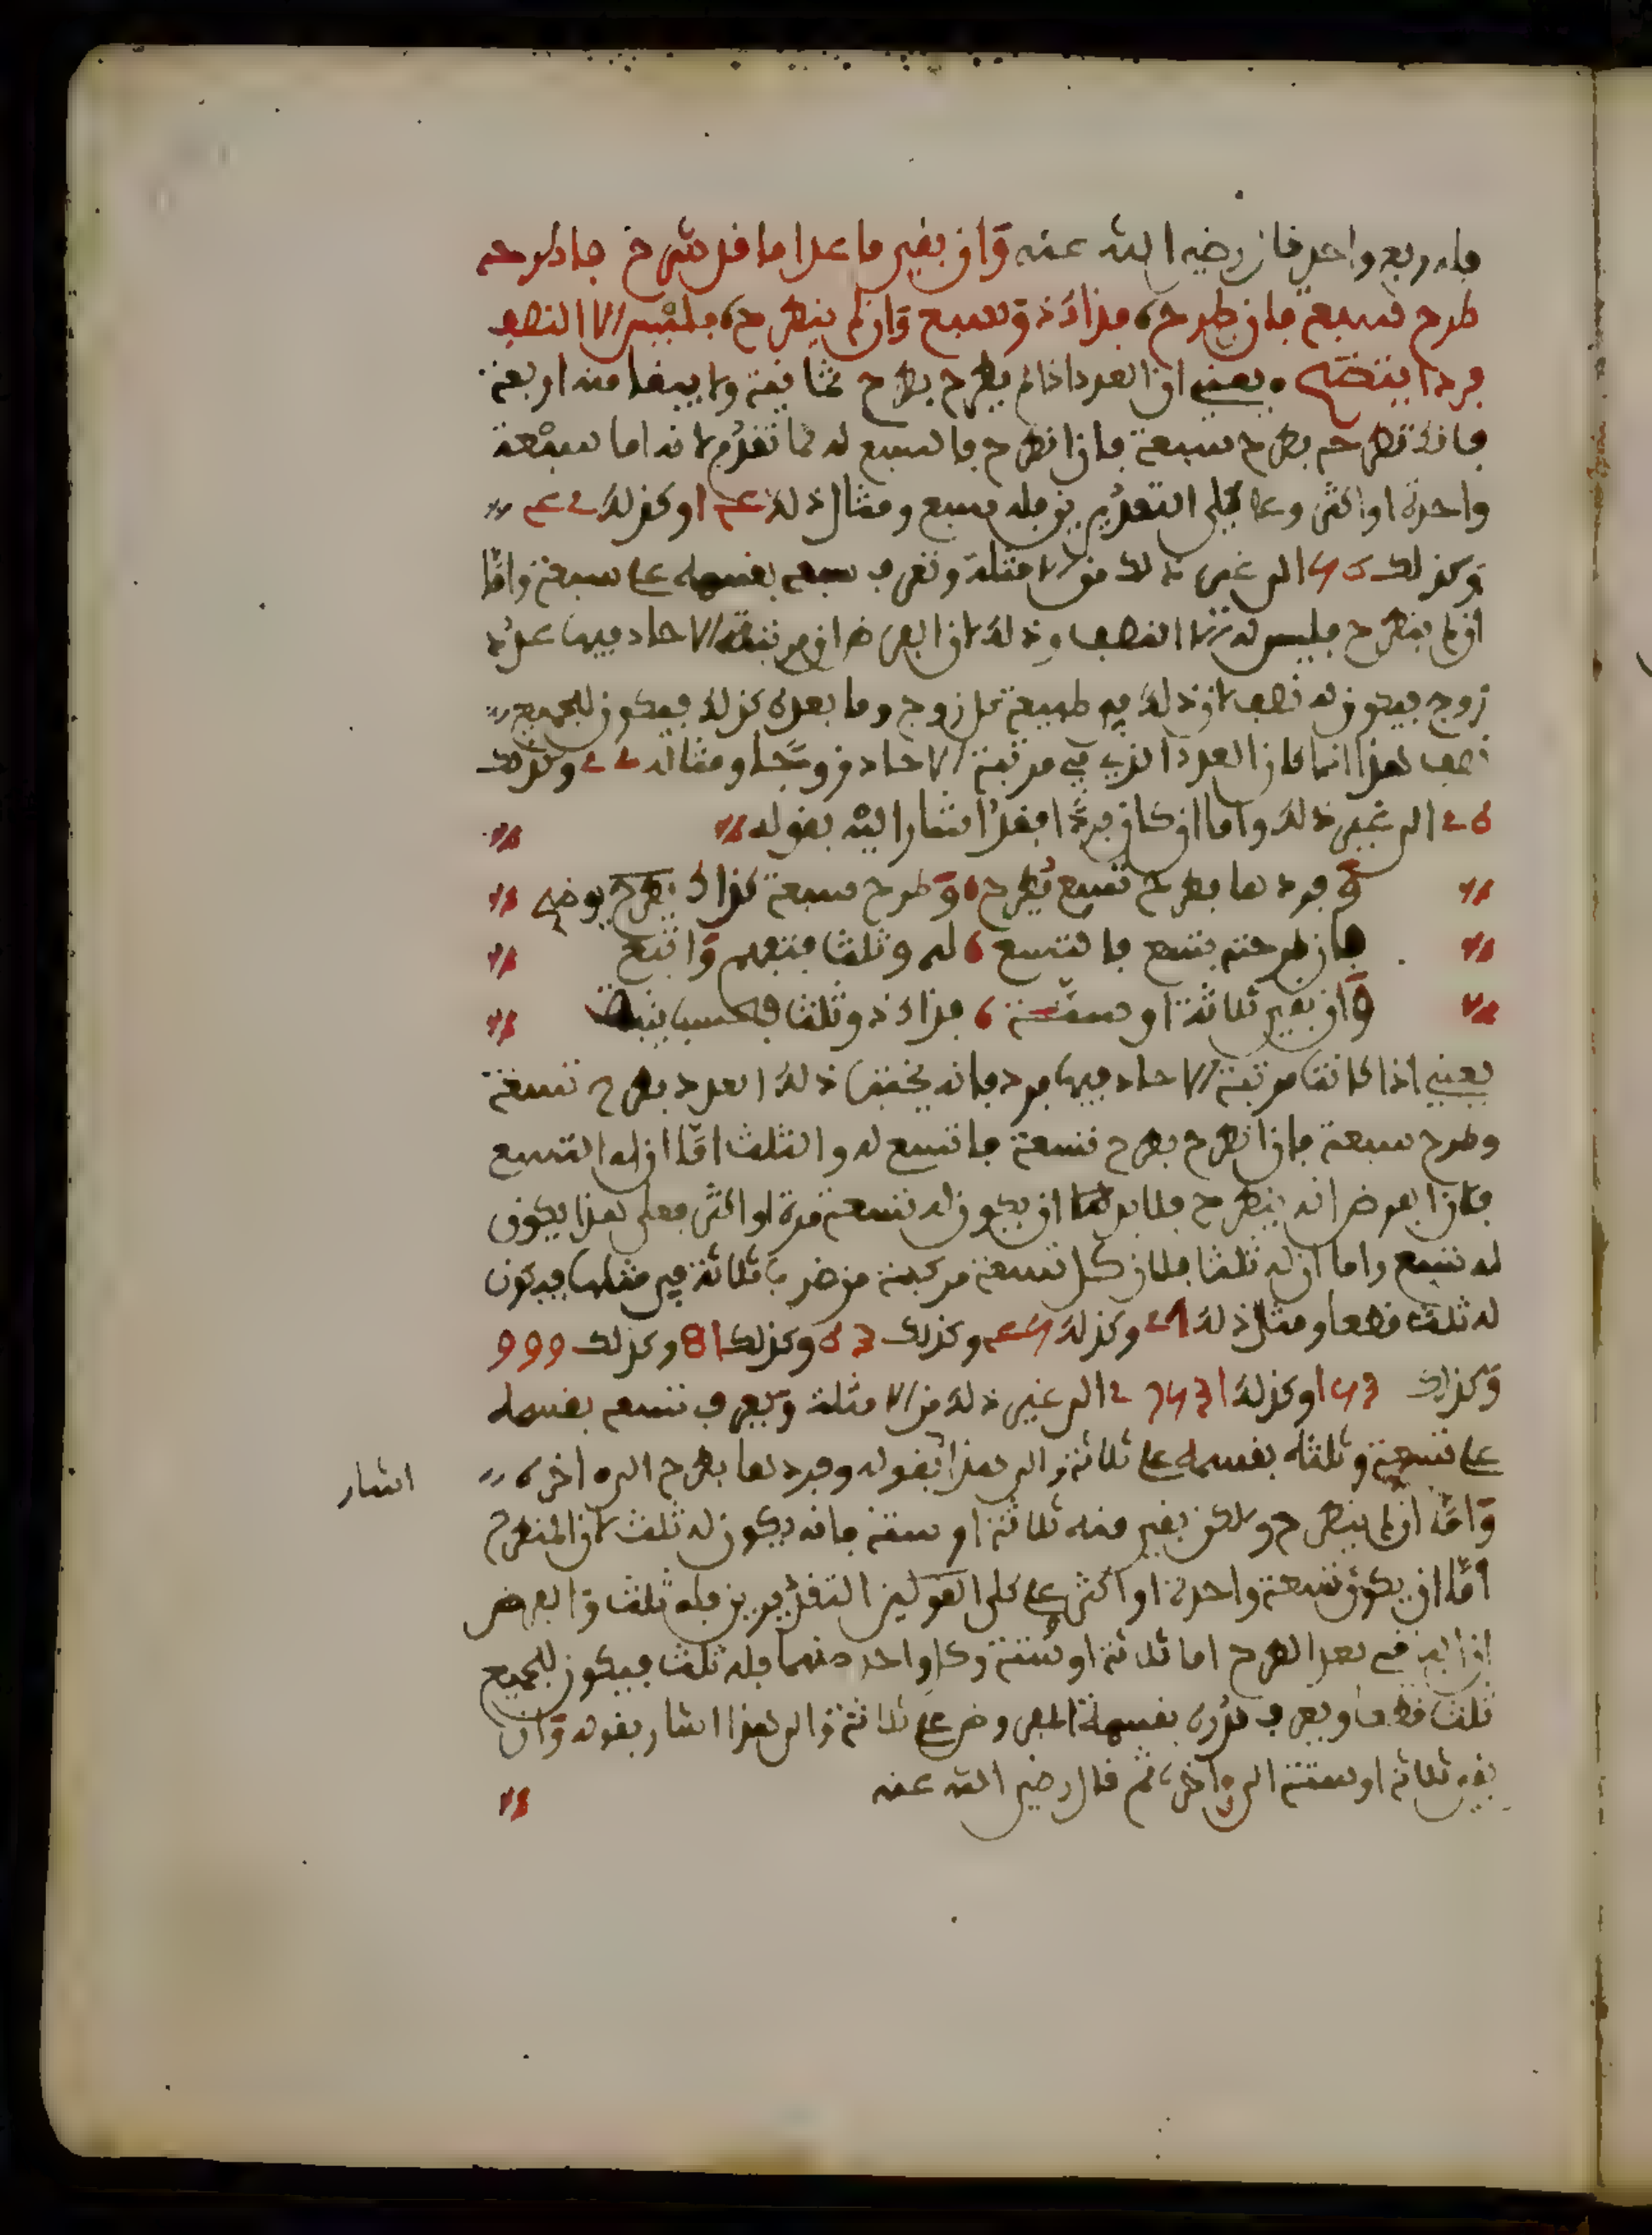 فله ربع واحد قال رضي الله عنه وإن بقي ما عدا ما قد شرح فاطرحه
طرح سبعة فإن طرح، فذاك ذو سبع وإن لم ينطرح، فليس إلا النصف
فردا يتضح، يعني ان العدد اذا لم يطرح بطرح ثمانية ولا يبقا منه اربعة
فانك تطرحه بطرح سبعة فإن انطرح فالسبع له لما تقدم لانه اما سبعة
واحدة او اكثر وعلى كلى التقديرين فله سبع ومثال ذلك 14 وكذلك 42
وكذلك الى غير ذلك من الامثلة وتعرف سبعه بقسمه على سبعة واما
ان لم ينطرح فليس له الا النصف وذلك لان الفرض ان مرتبة الاحاد فيها عدد
زوج فيكون له نصف لان ذلك في طبيعة كل زوج وما بعده كذلك فيكون للجميع
نصف هذا انما كان العدد الذي في مرتبة الاحاد زوجا ومثاله 22 وكذلك
26 الى غير ذلك واما ان كان فردا فقد اشار اليه بقوله
وفردها بطرح تسع يطرح، وطرح سبعة كذاك يطرح
فإن طرحته بتسع فالتسع، له وثلث واتبع
وإن بقي ثلاثة او ستة، فذاك ذو ثلث
يعني اذا كانت مرتبة الاحاد فيها فرد فانه يختبر ذلك العدد بطرح تسعة
وطرح سبعة فإن انطرح بطرح تسعة فالتسع له والثلث اما ان له التسع
فلان الفرض انه ينطرح فلابد ان يكون له تسعة مرة او اكثر فعلى هذا يكون
له تسع واما ان له ثلثا فلان كل تسعة مركبة من ضرب ثلاثة في مثلها فيكون
له ثلث قطعا ومثال ذلك 21 وكذلك وكذلك 63 وكذلك 81 وكذلك 999
وكذلك وكذلك الى غير ذلك من الامثلة ويعرف تسعه بقسمه
على تسعة وثلثه بقسمه على ثلاثة والى هذا بقوله وفردها بطرح الى اخره
اشار
واما ان لم ينطرح ولكن بقي منه ثلاثة او ستة فانه يكون له ثلث لان المنطرح
اما ان يكون تسعة واحدة او اكثر على كلى التقديرين فله ثلث والفرض
ان الباقي بعد الطرح اما ثلاثة او ستة وكل واحد منهما فله ثلث فيكون للجميع
ثلث قطعا ويعرف قدره بقسمة المفروض على ثلاثة والى هذا اشار بقوله وإن
بقي ثلاثة او ستة الى اخره، ثم قال رضي الله عنه